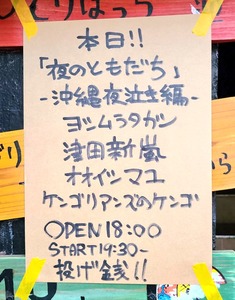 とりぼっち
本日!!
「夜のともだち」
-沖縄夜泣き編-
ヨシムラタカシ
津田新嵐
オオイシマユ
ケンゴリアンズのケンゴ
OPEN18:00
START19:30-
投げ銭!!